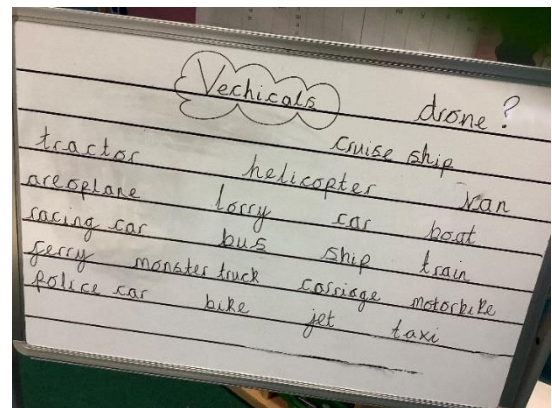 Vechicals
drone?
cruise ship
tractor helicopter van
areoplane lorry car boat
racing car bus ship train
ferry monster truck carriage motorbike
police car bike jet taxi